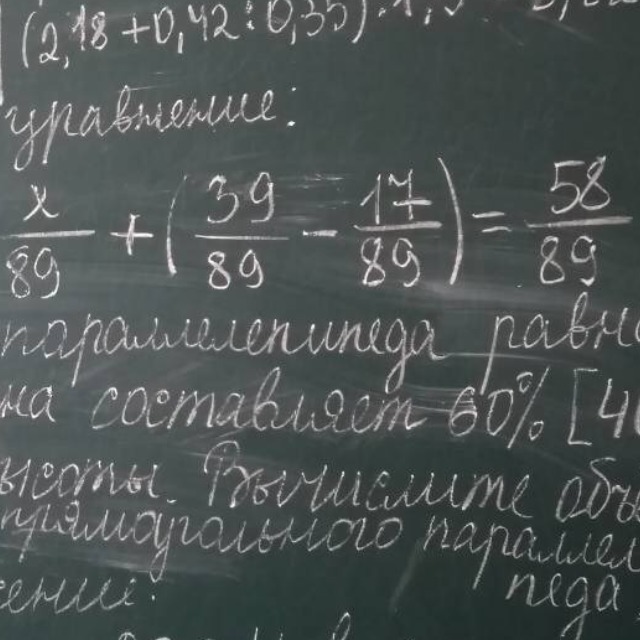 (2,18 + 0,42 : 0,35) · 1,
уравнение:
x/89 + (39/89 − 17/89) = 58/89
параллелепипеда равн
на составляет 60% [4
ысоты. Вычислите объ
прямоугольного параллел
педа
ение: